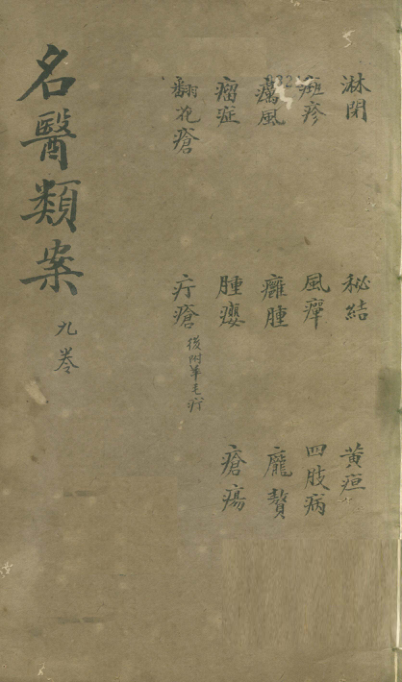 淋閉 秘結 黄疸
斑疹 風痺 四肢病
癘風 癰腫 龐贅
瘤症 腫癭 瘡瘍
翻花瘡 疔瘡
名醫類案 九卷